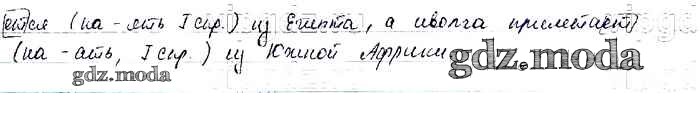 ется (на -ять I спр.) из Египта, а иволга прилетает
(на -ать, I спр.) из Южной Африки
gdz.moda
gdz.moda